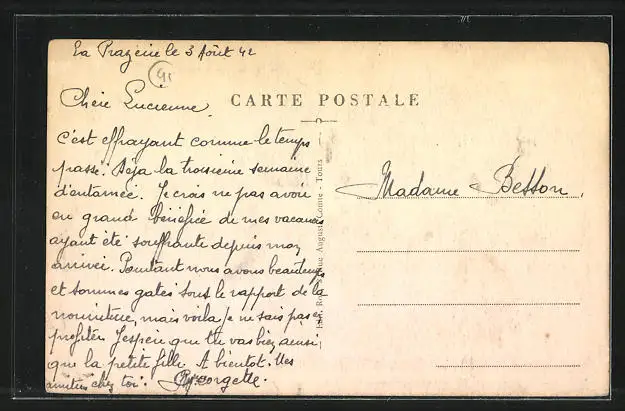 La Prazerie le 3 Août 42
41
Chère Lucienne
CARTE POSTALE
c'est effrayant comme le temps
passe. Déja la troisième semaine
d'entamée. Je crois ne pas avoir
eu grand bénéfice de mes vacances
ayant été souffrante depuis mon
arrivée. Pourtant nous avons beau temps
et sommes gatés sous le rapport de la
nourriture, mais voila je ne sais pas en
profiter. J'espère que tu vas bien ainsi
que la petite fille. A bientôt. Mes
amitiés chez toi. Georgette.
Madame Besson.
Rue Auguste Comte - Tours